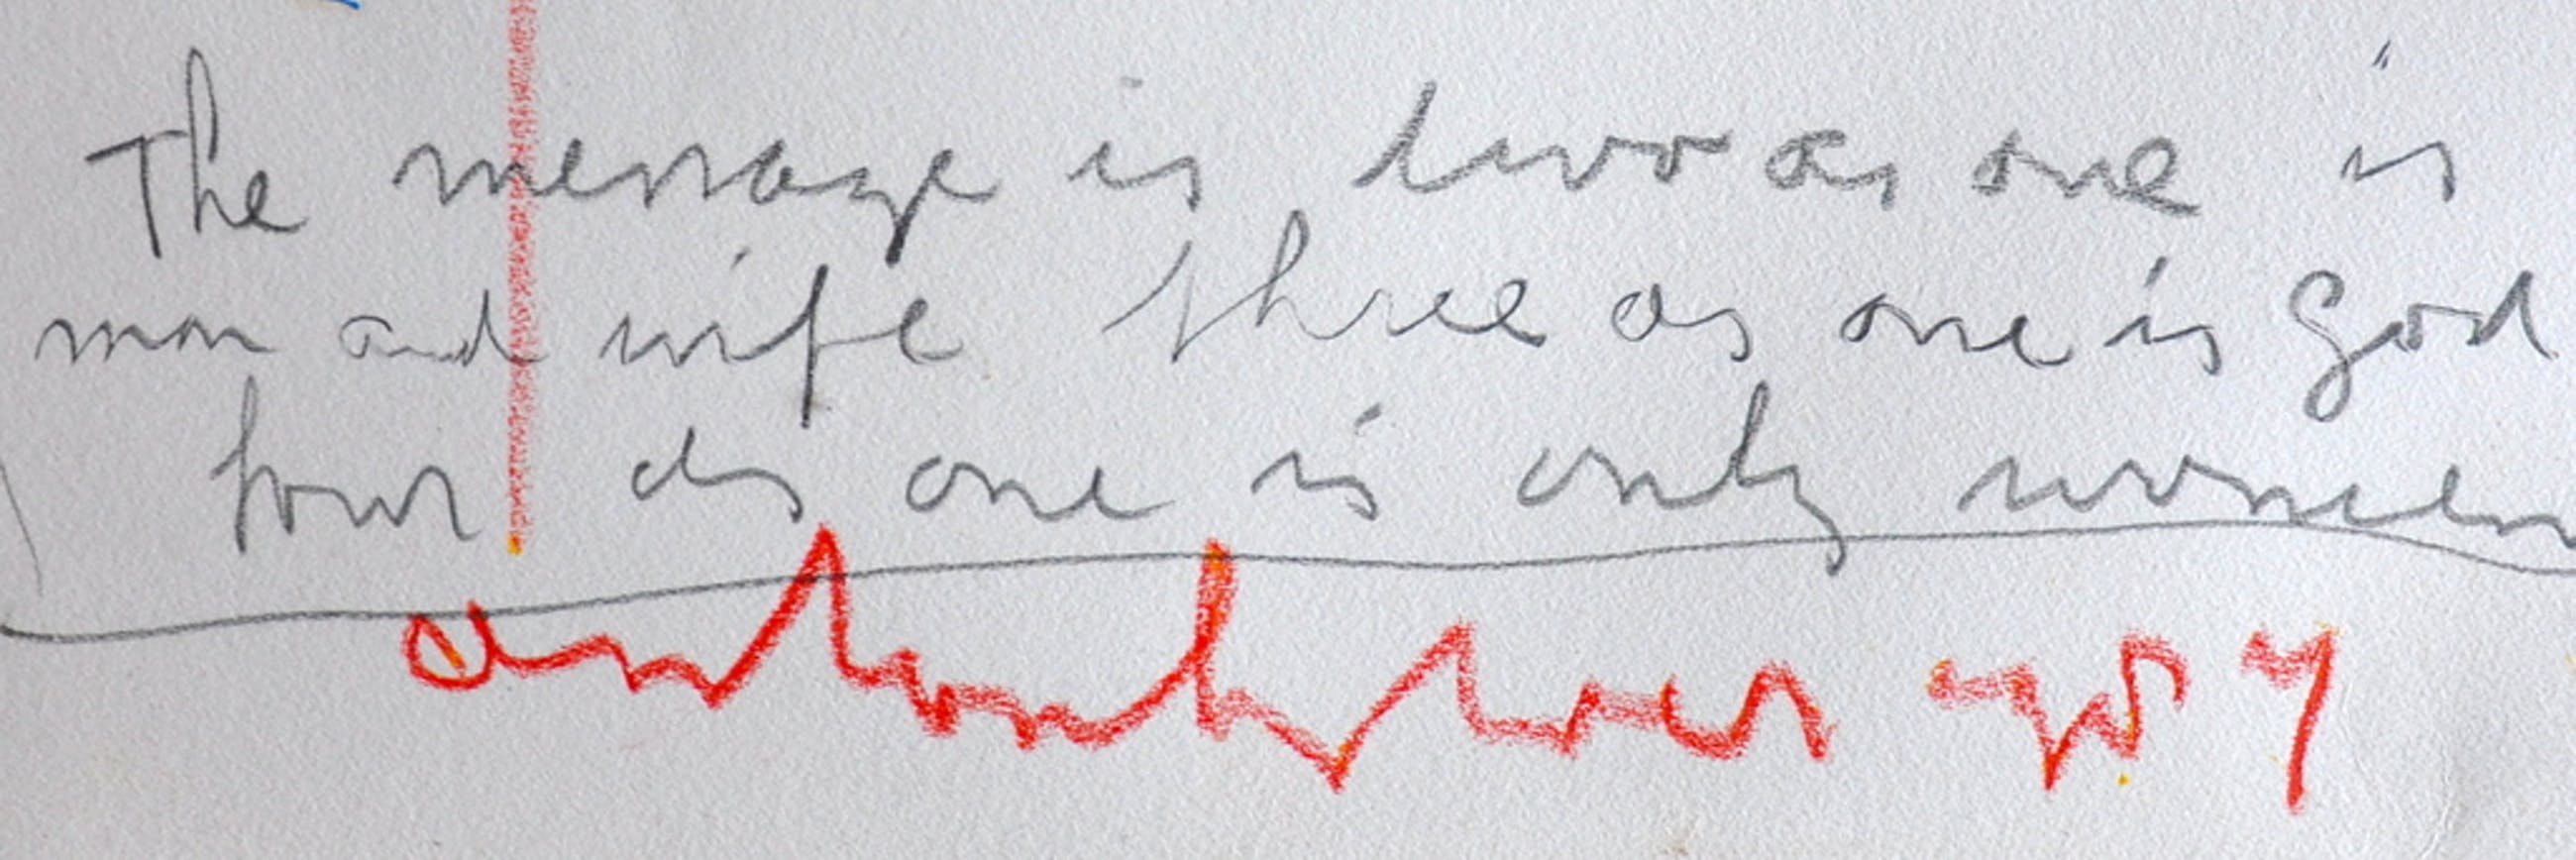 The message is two as one is
man and wife three as one is God
four as one is only women